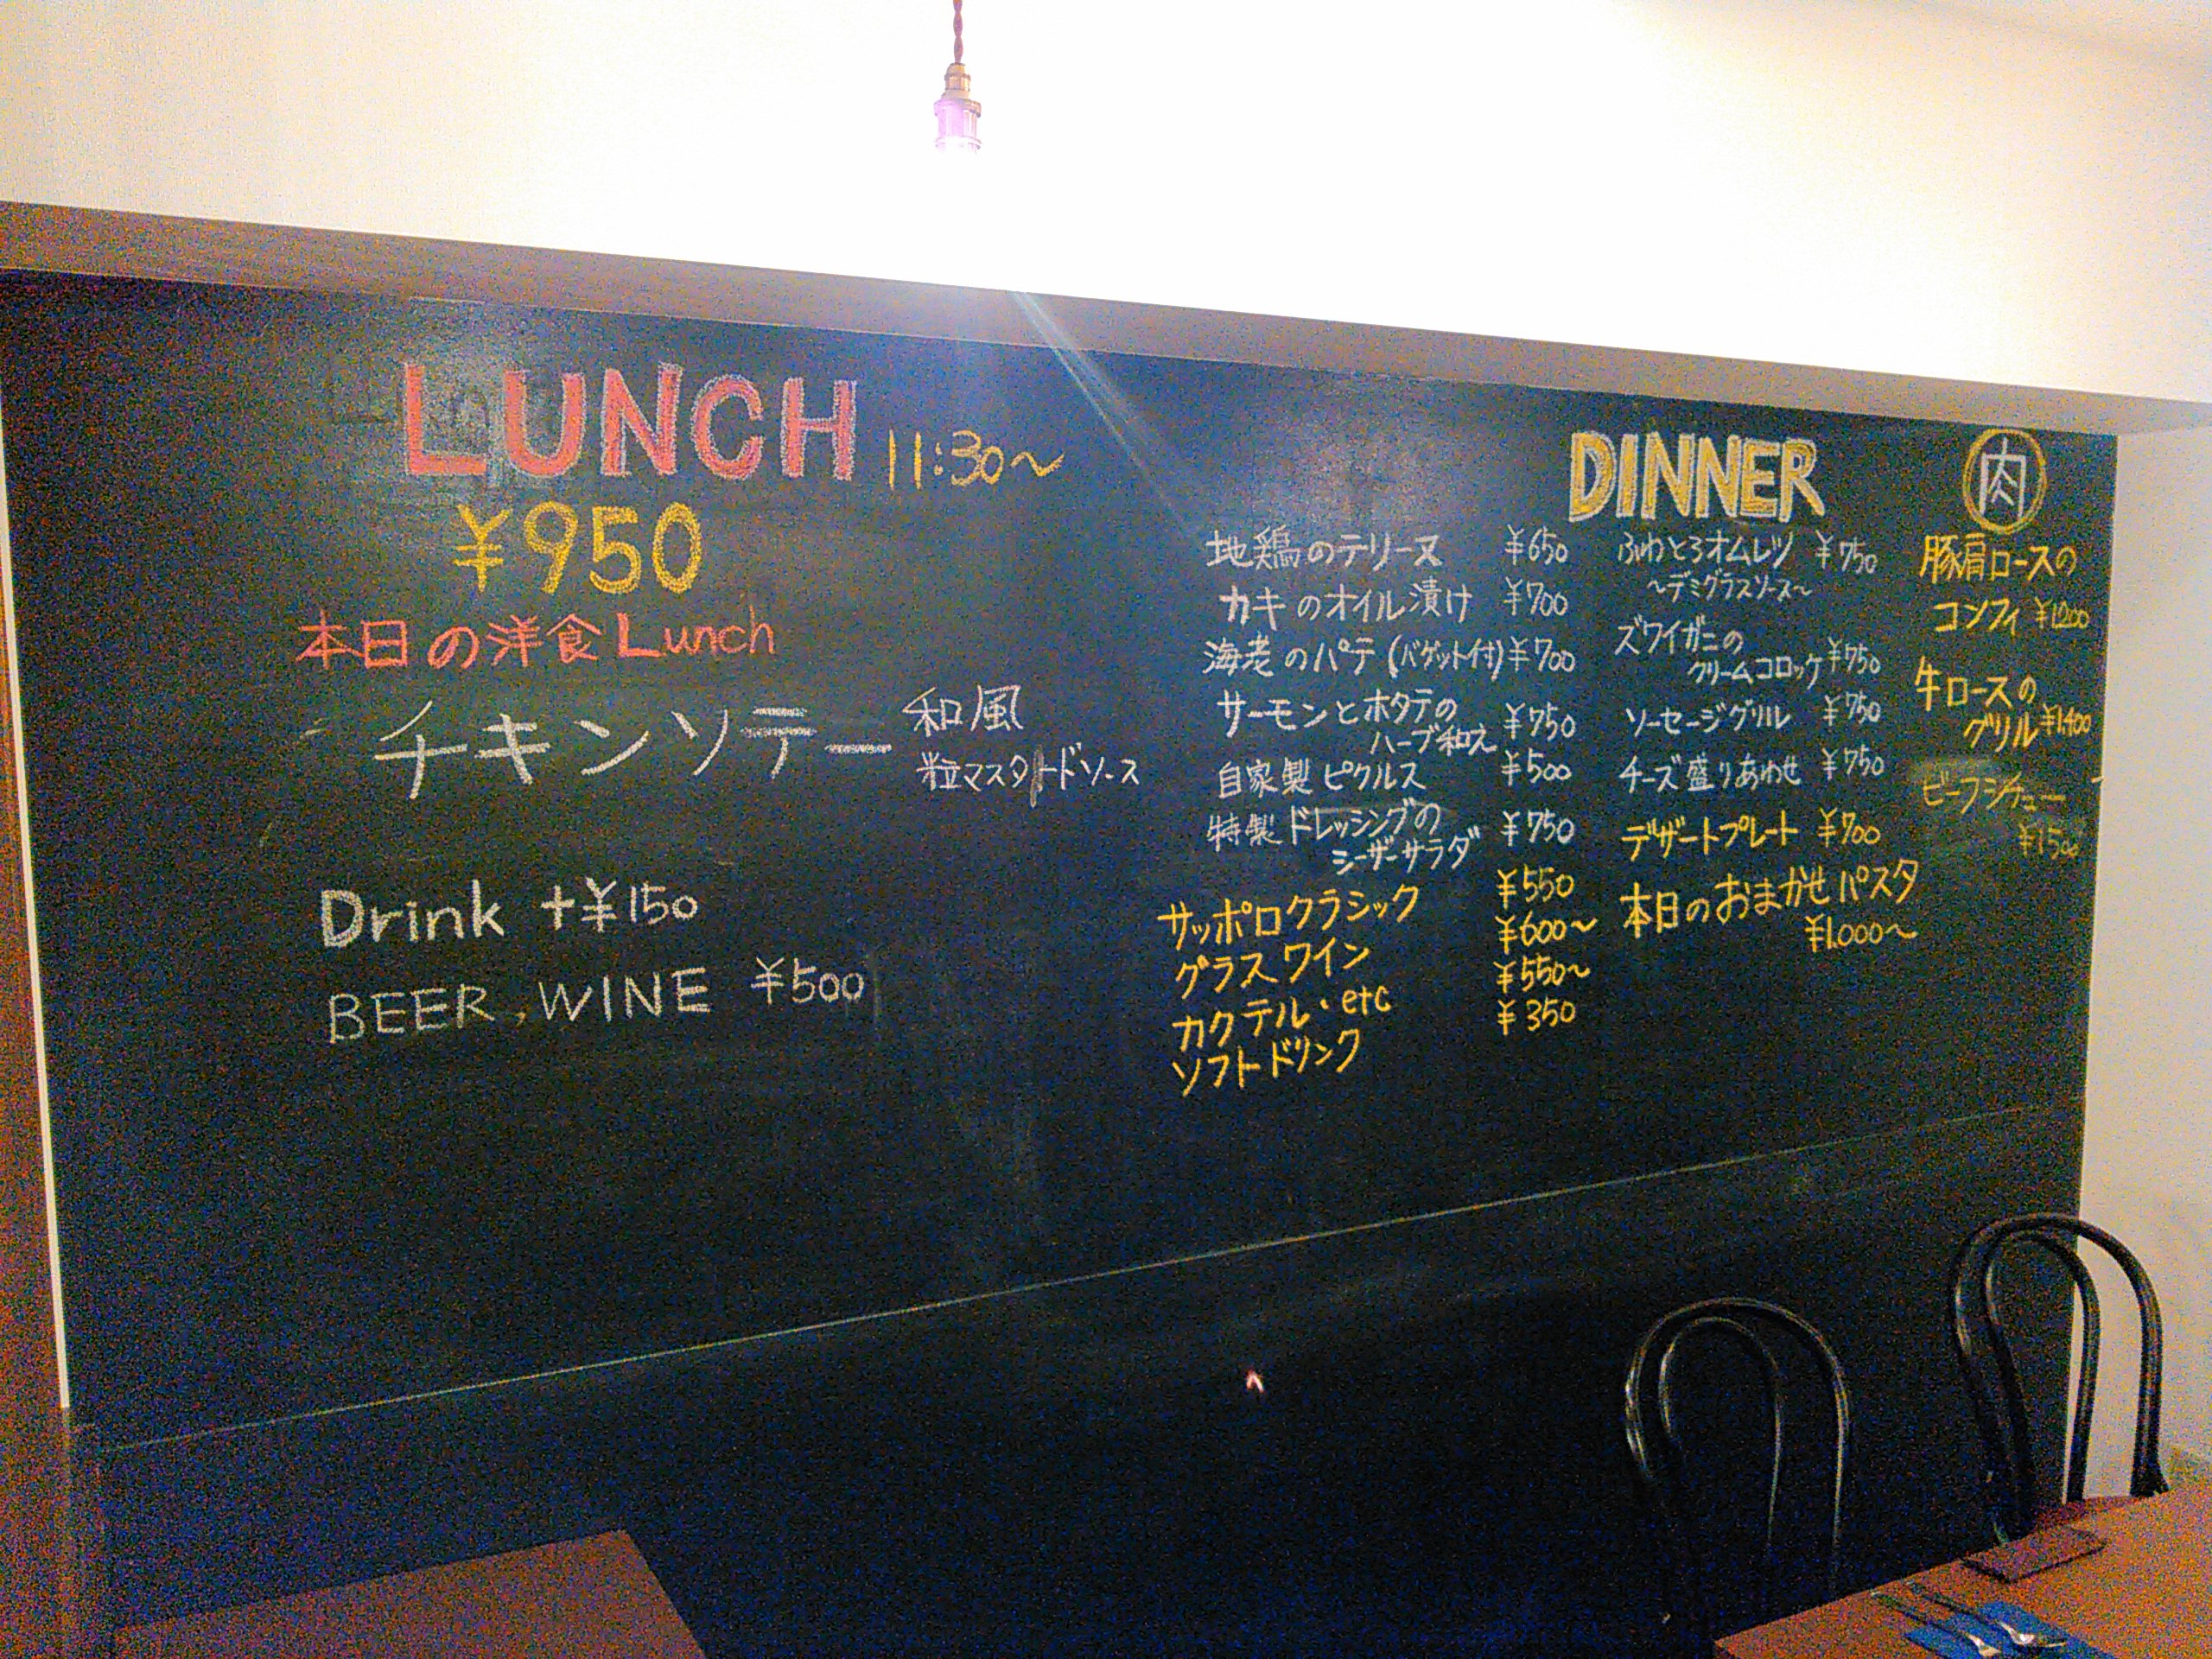 LUNCH 11:30～
¥950
本日の洋食Lunch
チキンソテー 和風
粒マスタードソース
Drink +¥150
BEER,WINE ¥500
DINNER
地鶏のテリーヌ ¥650
カキのオイル漬け ¥700
海老のパテ(バゲット付) ¥700
サーモンとホタテの
ハーブ和え ¥750
自家製ピクルス ¥500
特製ドレッシングの
シーザーサラダ ¥750
サッポロクラシック ¥550
グラスワイン ¥600～
カクテル・etc ¥550～
ソフトドリンク ¥350
ふわとろオムレツ ¥750
～デミグラスソース～
ズワイガニの
クリームコロッケ ¥750
ソーセージグリル ¥750
チーズ盛りあわせ ¥750
デザートプレート ¥700
本日のおまかせパスタ
¥1.000～
肉
豚肩ロースの
コンフィ ¥1200
牛ロースの
グリル ¥1,400
ビーフシチュー
¥1500